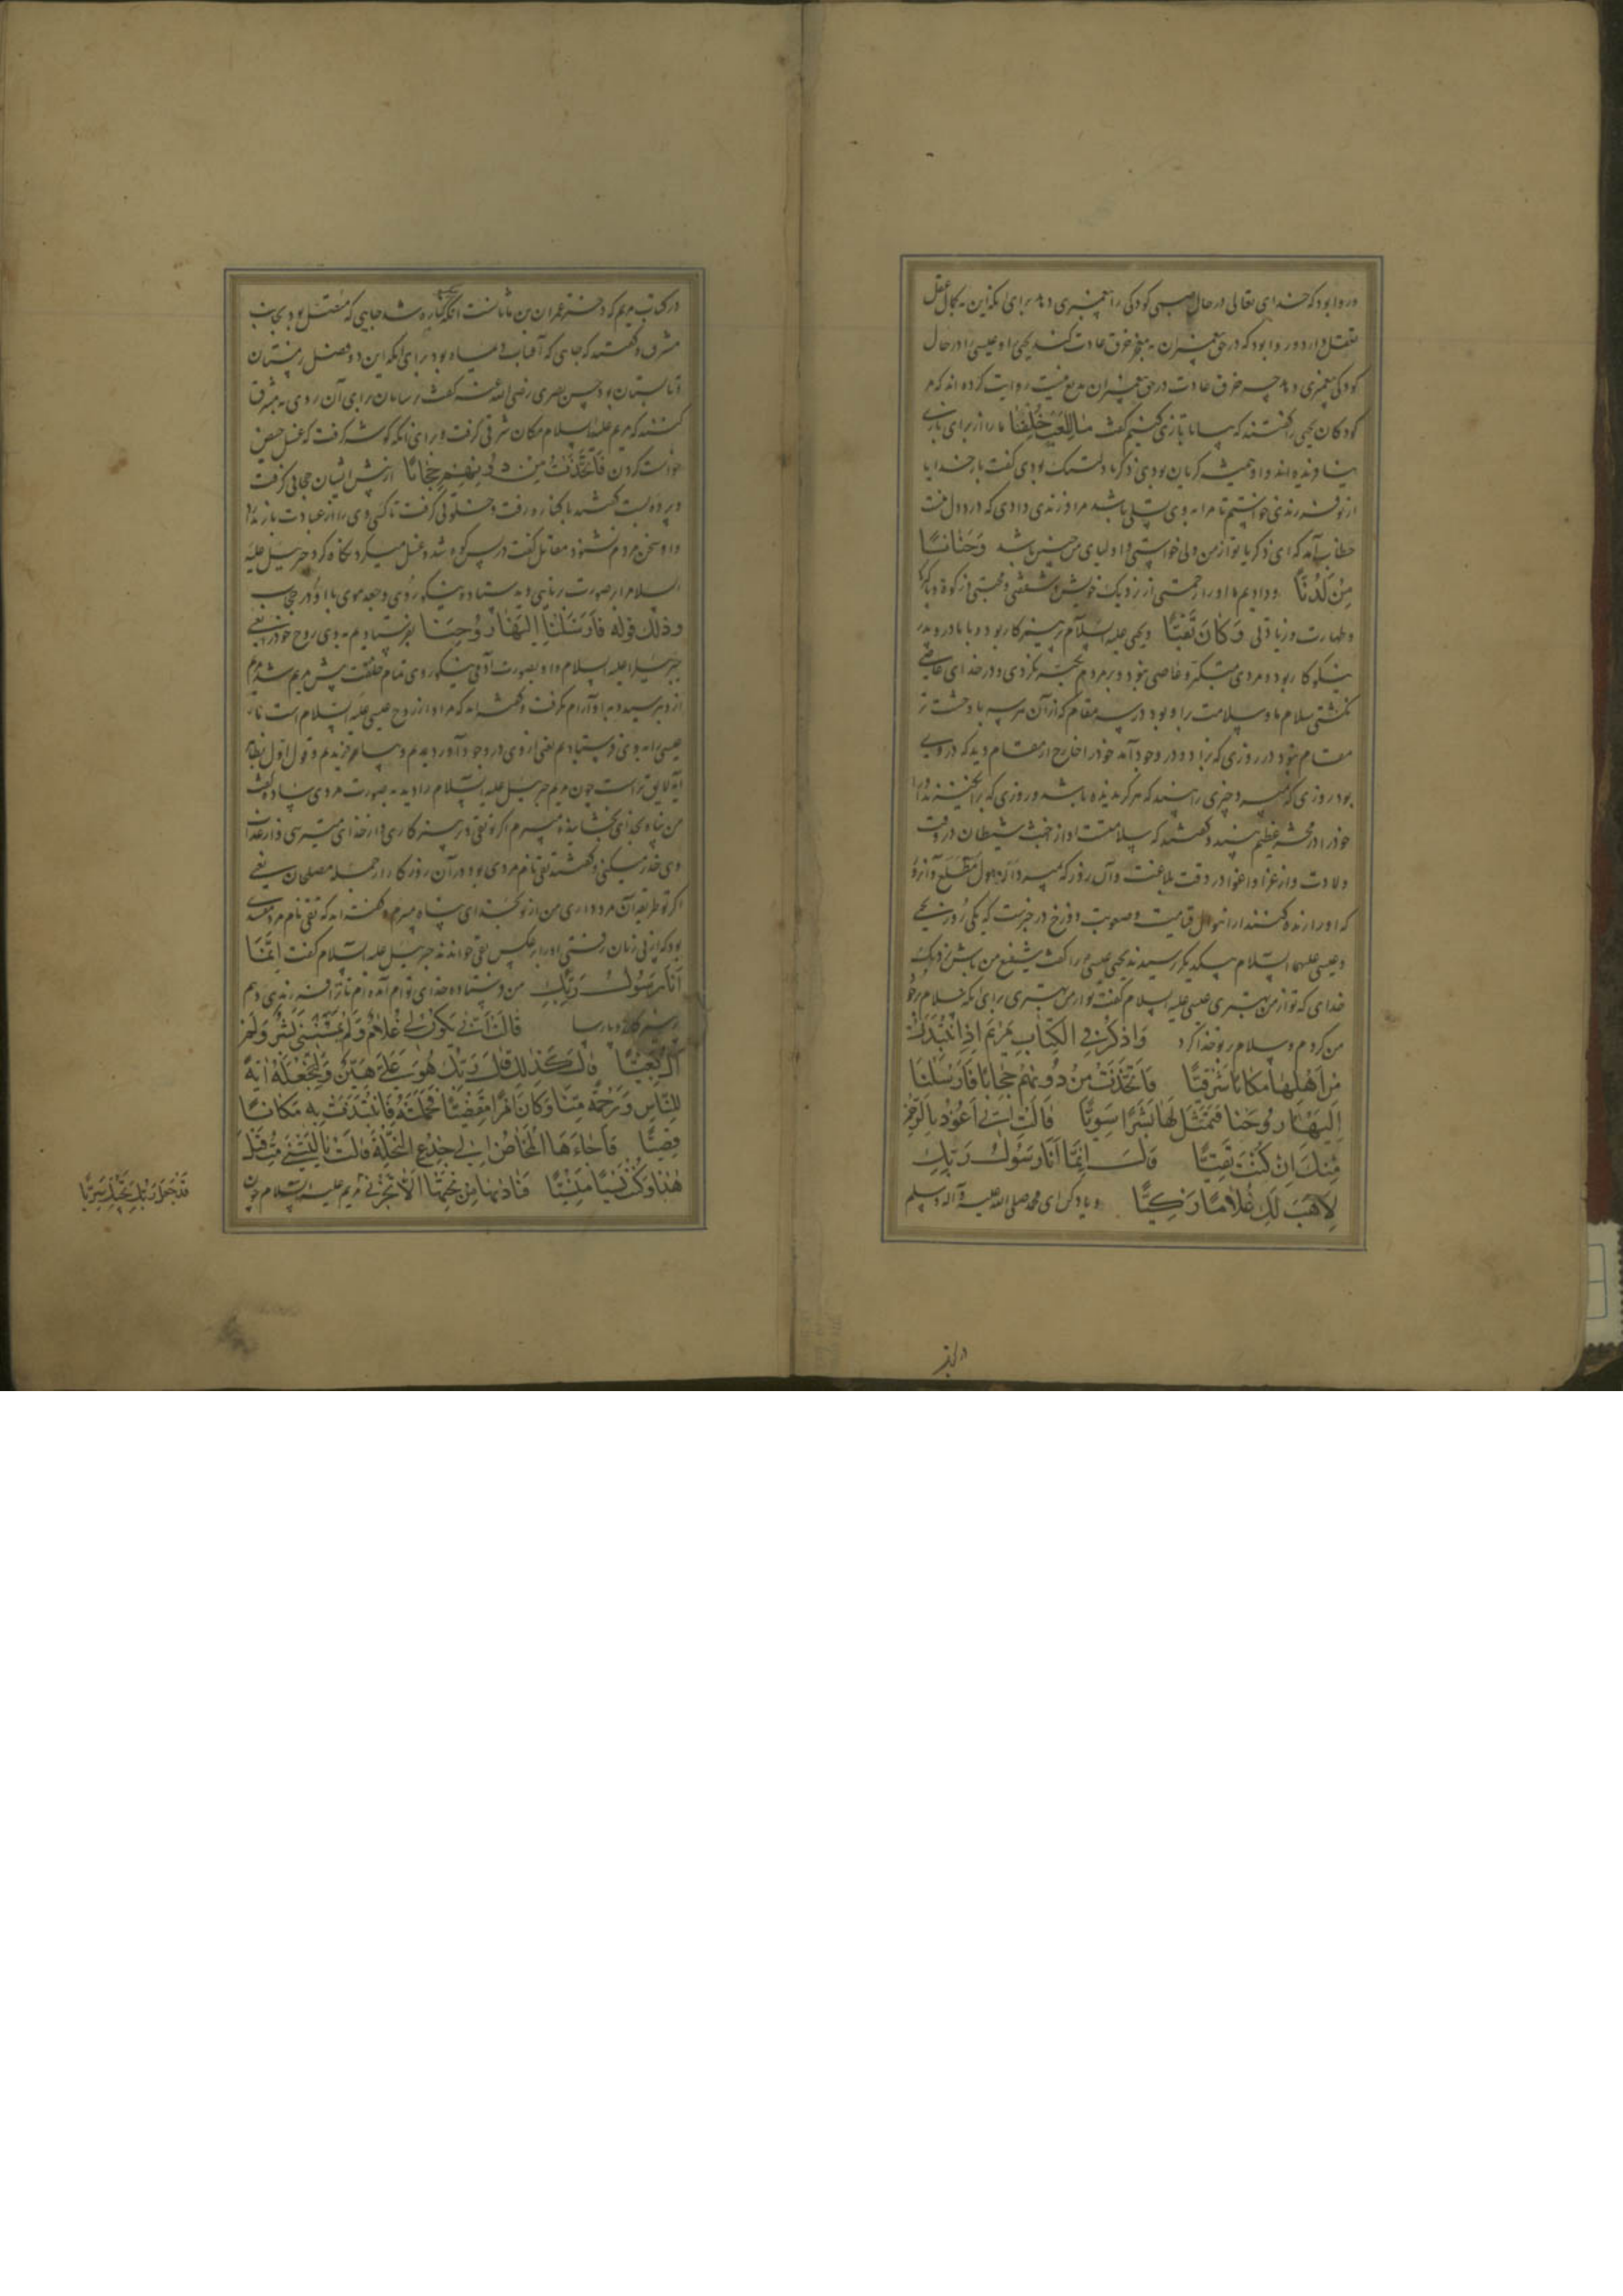 و روا بود که خدای تعالی در حال صبی کودکی را پیغمبری دهد برای آنکه این به کمال عقل
تعلق دارد و روا بود که در حق پیغمبران به معجز خرق عادت کند یحیی را و عیسی را در حال
کودکی پیغمبری دهد چه خرق عادت در حق پیغمبران بدیع نیست روایت کرده اند که
کودکان یحیی را گفتند که بیا تا بازی کنیم گفت مَا لِلَّعِبِ خُلِقْنَا ما را از برای بازی
نیافریده اند و او همیشه گریان بودی زکریا دلتنگ بودی گفت بار خدایا
از تو فرزندی خواستم تا مرا به وی تسلی باشد مرا فرزندی دادی که در دل
خطاب آمد که ای زکریا تو از من ولی خواستی و اولیای من چنین باشد وَحَنَانًا
مِنْ لَدُنَّا و دادیم ما او را رحمتی از نزدیک خویش و شفقتی و محبتی و زکوة و پاکی
و طهارت و زیادتی وَكَانَ تَقِيًّا و یحیی علیه السلام پرهیزکار بود و با مادر و پدر
نیکوکار بود و مردی متکبر و عاصی نبود و بر مردم تجبر نکردی و در خدای عاصی
نگشتی سلام ما و سلامت بر او بود در سه مقام که از آن هر سه با وحشت تر
مقام نبود در روزی که بزاد و در وجود آمد خود را خارج از مقام دید که در وی
بود روزی که بمیرد و چیزی را بیند که هرگز ندیده باشد و روزی که برانگیزند او را
خود را در محشر عظیم بیند و گفتند که سلامت او از خبث شیطان در وقت
ولادت و از عزا و اغوا در وقت بلاغت و آن روز که بمیرد از هول مطلع و آن روز
که او را زنده کنند از اهوال قیامت و صعوبت دوزخ در خبرست که یکی روز یحیی
و عیسی علیهما السلام بیکدیگر رسیدند یحیی عیسی را گفت شفیع من باش نزدیک
خدای که تو از من بهتری عیسی علیه السلام گفت تو از من بهتری برای آنکه سلام بر خود
من کردم و سلام بر تو خدا کرد وَاذْكُرْ فِي الْكِتَابِ مَرْيَمَ إِذِ انْتَبَذَتْ
مِنْ أَهْلِهَا مَكَانًا شَرْقِيًّا فَاتَّخَذَتْ مِنْ دُونِهِمْ حِجَابًا فَأَرْسَلْنَا
إِلَيْهَا رُوحَنَا فَتَمَثَّلَ لَهَا بَشَرًا سَوِيًّا قَالَتْ إِنِّي أَعُوذُ بِالرَّحْمَنِ
مِنْكَ إِنْ كُنْتَ تَقِيًّا قَالَ إِنَّمَا أَنَا رَسُولُ رَبِّكِ
لِأَهَبَ لَكِ غُلَامًا زَكِيًّا و یاد کن ای محمد صلی الله علیه و آله و سلم
در کتاب مریم که دختر عمران بن ماثانست آنگه که بکناره شد جایی که متصل بود بجانب
مشرق و گفتند که جای که آفتاب بود برای آنکه این در فصل زمستان
تابستان بود حسن بصری رضی الله عنه گفت ترسایان برای آن روی به مشرق
کنند که مریم علیها السلام مکان شرقی گرفت و برای آنکه گوشه گرفت که غسل حیض
خواست کردن فَاتَّخَذَتْ مِنْ دُونِهِمْ حِجَابًا از پیش ایشان حجابی گرفت
و پرده بست گفتند با کناره رفت و خلوتی گرفت تا کسی وی را از عبادت باز ندارد
و او سخن مردم نشنود مقاتل گفت در پس کوه شد و غسل میکرد نگاه کرد جبرئیل علیه
السلام را بر صورت برنایی دید ایستاده نیکو روی و جعد موی با او در حجاب
وذلك قوله فَأَرْسَلْنَا إِلَيْهَا رُوحَنَا بفرستادیم به وی روح خود را یعنی
جبرئیل را علیه السلام و او بصورت آدمی نیکو روی تمام خلقت پیش مریم شد مریم
ازو بترسید و با او آرام نگرفت و گفته اند که مراد از روح عیسی علیه السلام است تا
عیسی را به وی فرستادیم یعنی از وی در وجود آوردیم و بیافریدیم و قول اول بنظم
آیه لایق تر است چون مریم جبرئیل علیه السلام را دید به صورت مردی گفت
من پناه بخدای بخشاینده میبرم اگر تو تقی و پرهیزکاری و از خدای میترسی و از عذاب
وی حذر میکنی و گفتند تقی نام مردی بود در آن روزگار از جمله مصلحان یعنی
اگر تو طریقه آن مرد داری من از تو بخدای پناه میبرم و گفته اند که تقی نام مرد مفسدی
بود که از پی زنان رفتی او را بر عکس تقی خواندند جبرئیل علیه السلام گفت إِنَّمَا
أَنَا رَسُولُ رَبِّكِ من فرستاده خدای توام آمده ام تا ترا فرزندی دهم
پرهیزکار و پارسا قَالَتْ أَنَّى يَكُونُ لِي غُلَامٌ وَلَمْ يَمْسَسْنِي بَشَرٌ وَلَمْ
أَكُ بَغِيًّا قَالَ كَذَلِكِ قَالَ رَبُّكِ هُوَ عَلَيَّ هَيِّنٌ وَلِنَجْعَلَهُ آيَةً
لِلنَّاسِ وَرَحْمَةً مِنَّا وَكَانَ أَمْرًا مَقْضِيًّا فَحَمَلَتْهُ فَانْتَبَذَتْ بِهِ مَكَانًا
قَصِيًّا فَأَجَاءَهَا الْمَخَاضُ إِلَى جِذْعِ النَّخْلَةِ قَالَتْ يَا لَيْتَنِي مِتُّ قَبْلَ
هَذَا وَكُنْتُ نَسْيًا مَنْسِيًّا فَنَادَاهَا مِنْ تَحْتِهَا أَلَّا تَحْزَنِي مریم علیها السلام چون
قَدْ جَعَلَ رَبُّكِ تَحْتَكِ سَرِيًّا